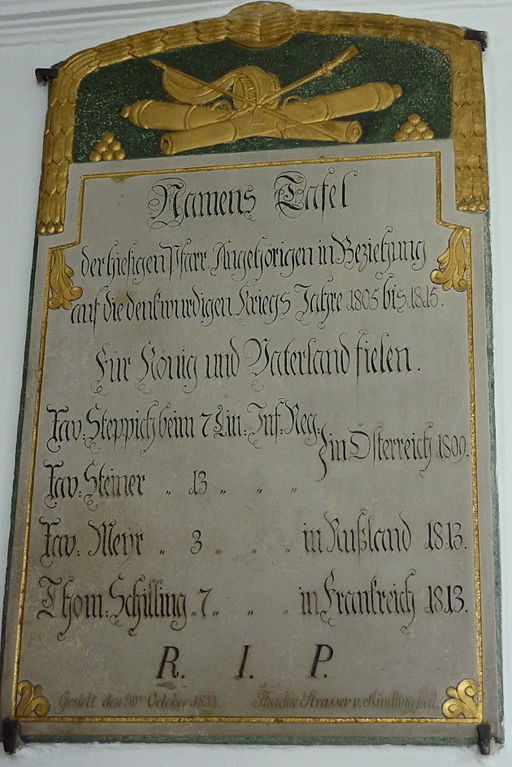 Namens Tafel
der hiesigen Pfarr Angehörigen in Beziehung
auf die denkwürdigen Kriegs Jahre 1805 bis 1815.
Für König und Vaterland fielen.
Xav: Steppich beim 7 Lin: Inf: Reg:
in Österreich 1809.
Xav: Steiner „ 13 „ „ „
Xav: Meyr „ 3 „ „ „ in Rußland 1813.
Thom: Schilling „ 7 „ „ „ in Frankreich 1813.
R. I. P.
Gestelt den 30ten October 1833. Strasser v. Kindling fecit.